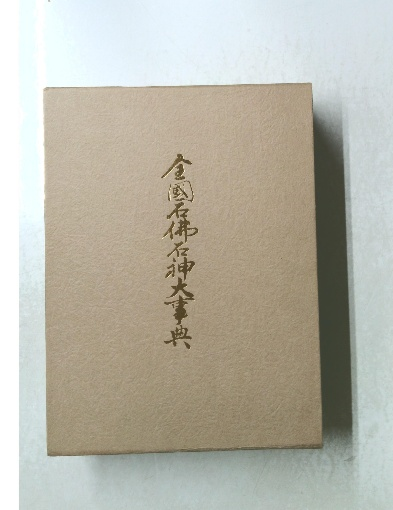 全國石佛石神大事典